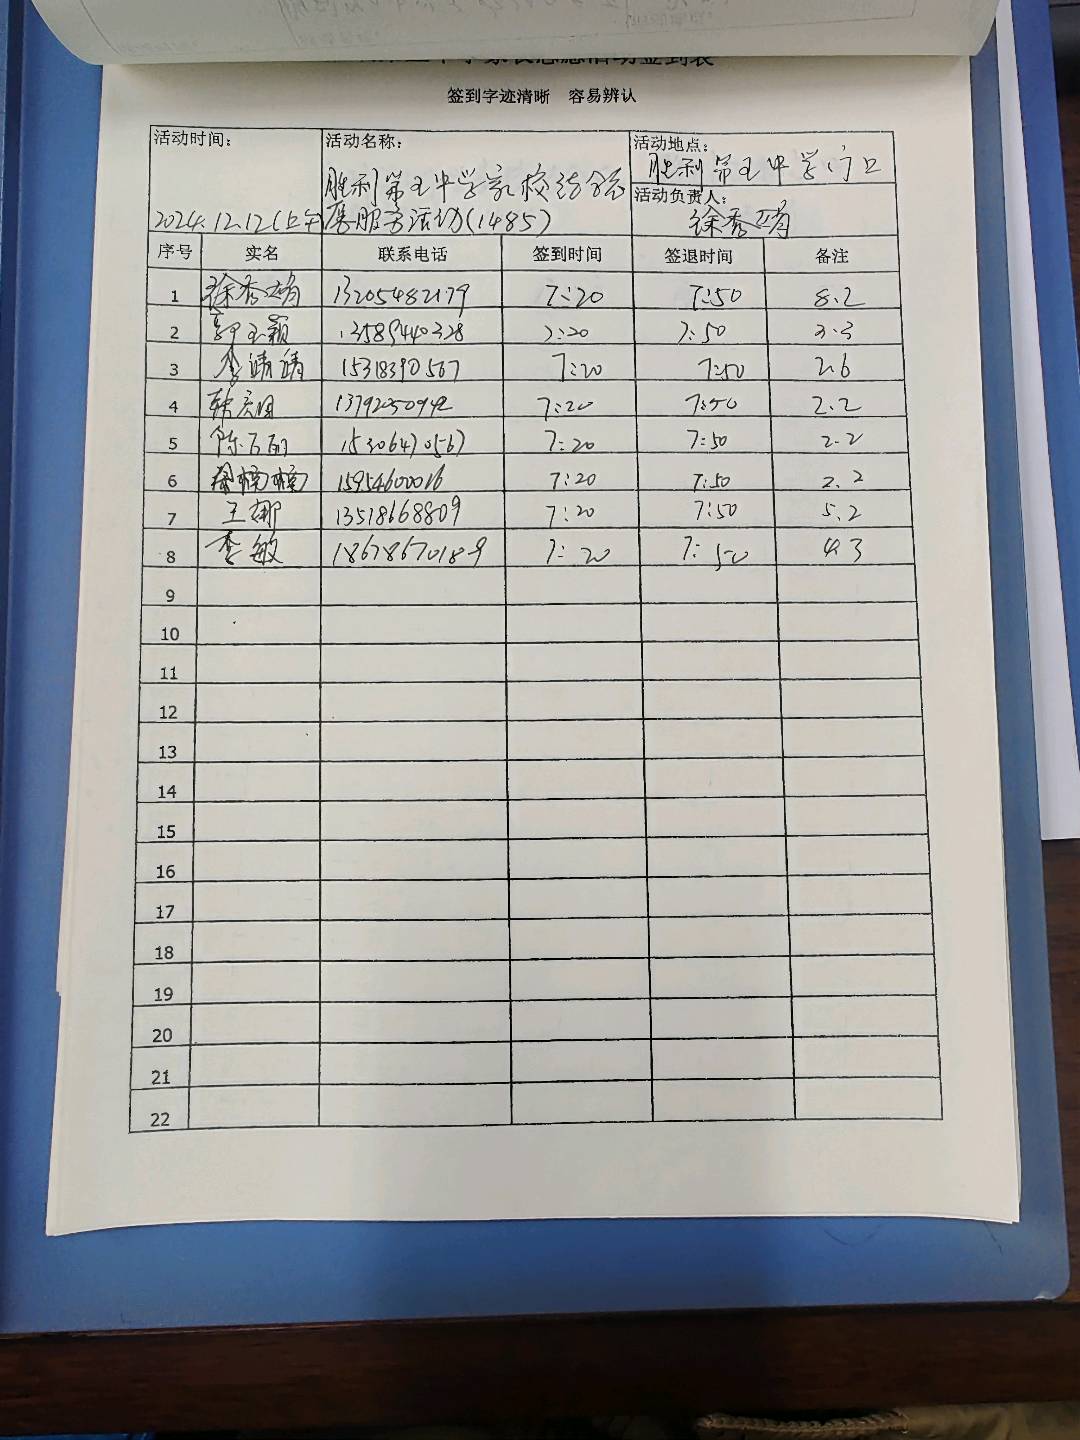 签到字迹清晰 容易辨认
活动时间： 活动名称： 活动地点：
胜利第五中学门口
胜利第五中学家校
活动负责人：
2024.12.12(上午) 服务活动(1485) 徐秀娟
序号 实名 联系电话 签到时间 签退时间 备注
1 徐秀娟 13205482179 7:20 7:50 8.2
2 郭玉颖 13589440328 7:20 7:50 3.3
3 李靖靖 15318390567 7:20 7:50 2.6
4 13792050942 7:20 7:50 2.2
5 15306470567 7:20 7:50 2.2
6 楠楠 15954600016 7:20 7:50 2.2
7 王娜 13518668809 7:20 7:50 5.2
8 李敏 18678670189 7:20 7:50 4.3
9
10
11
12
13
14
15
16
17
18
19
20
21
22